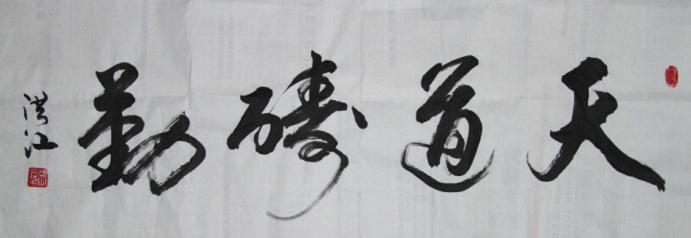 天道酬勤
洪江